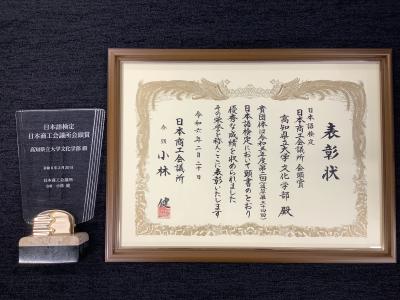 日本語検定
日本商工会議所会頭賞
高知県立大学文化学部 殿
令和6年2月20日
日本商工会議所
会頭 小林 健
表彰状
日本語検定
日本商工会議所 会頭賞
高知県立大学 文化学部 殿
貴団体は令和五年度第二回
日本語検定において頭書のとおり
優秀な成績を収められました
その栄誉を称えここに表彰いたします
令和六年二月二十日
日本商工会議所
会頭 小林 健